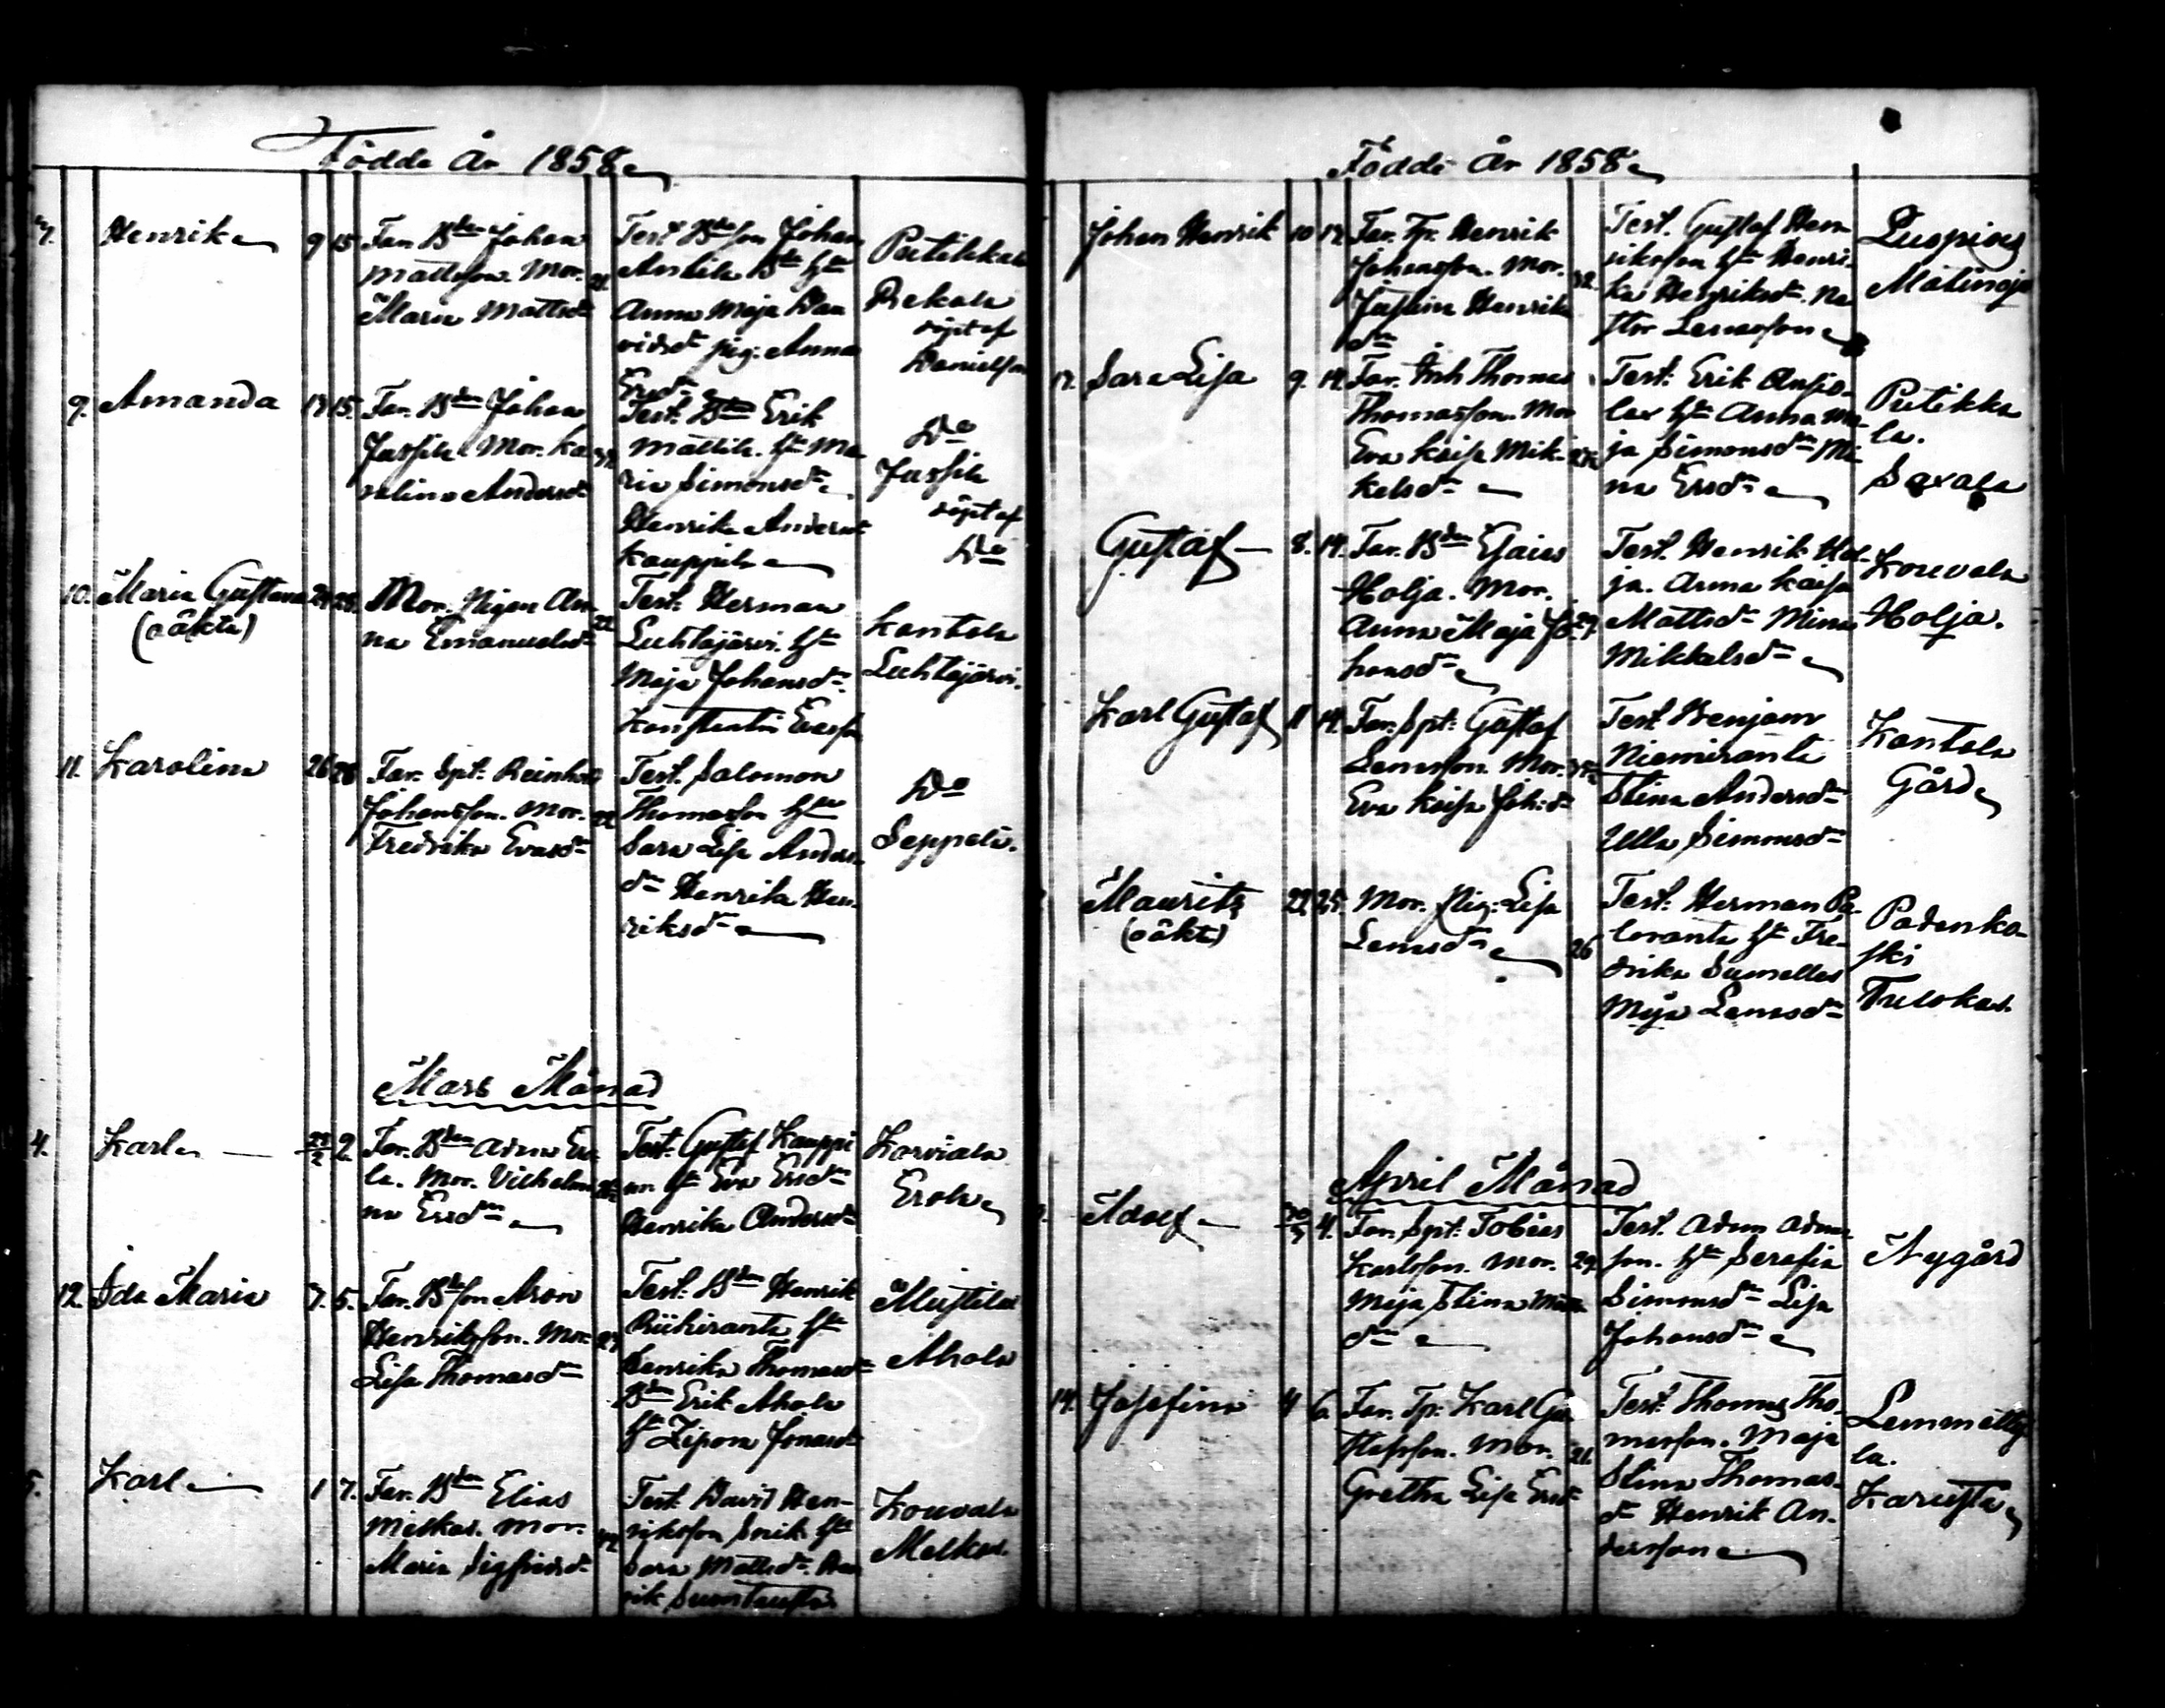 Födde År 1858
7. Henrika 9 15 Far. Bdn Johan
Mattsson. Mor.
Maria Mattsdr
Test Bdeson Johan
Anttila Bde hu
Anna Maja Da
vidsdr pig. Anna
Ersdr
Putikkala
Pekola
döpt af
Danielson
9. Amanda 13 15. Far. Bdn Johan
Jussila Mor. Ka
rolina Andersdr
Test. Bdn Erik
Mattila. hu Ma
ria Simonsdr
Henrika Andersdr
Kauppila
Do
Jussila
döpt af
Do
10. Maria Gustava
(oäkta)
Mor. Pigan An
na Emanuelsdr 22
Test. Herman
Luhtajärvi. hu
Maja Johansdr.
Konstantin Evasson
Kantola
Luhtajärvi.
11. Karolina 26 28 Far. Spt. Reinhold
Johansson. Mor. 22
Fredrika Evasdr
Test. Salomon
Thomasson hu
Sara Lisa Anders
dr Henrika Hen
riksdr
Do
Seppälä.
Mars Månad
4. Karl 2. Far. Bdn Adam Ero
la. Mor. Vilhelmi
na Ersdr
Test. Gustaf Kauppi
hu Eva Ersdr
Henrika Andersdr
Korviala
Erola
12. Ida Maria 3. 5. Far. Bdeson Aron
Henriksson. Mor.
Lisa Thomasdr
Test. Bdn Henrik
Riihiranta hu
Henrika Thomasdr
Bdn Erik Ahola
hu Zipora Jonasdr
Mustila
Ahola
5. Karl 1 7. Far. Bdn Elias
Melkas. Mor.
Maria Sigfridsdr
Test. David Hen-
riksson hu
Sara Mattsdr. Hen
rik
Kouvala
Melkas.
Födde År 1858
Johan Henrik 10 12. Far. Tp. Henrik
Johansson. Mor.
Justina Henriks
dr
Test. Gustaf Hen
riksson hu Henri
ka Henriksdr. Ne
stor Lenasson
17. Sara Lisa 9. 14. Far. Inh Thomas
Thomasson. Mor
Eva Kaisa Mik-
kelsdr
Test. Erik Anjo-
hu Anna Ma
ja Simonsdr Mi
na Ersdr
Putikka
la.
Saxala
Gustaf 8. 14. Far. Bdn Esaias
Holja. Mor.
Anna Maja Jo-
hansdr
Test. Henrik Hol-
ja. Anna Kaisa
Mattsdr Mina
Mikkelsdr
Kouvala
Holja.
Karl Gustaf 11 14. Far. Spt: Gustaf
Lenasson. Mor.
Eva Kaisa Joh:dr
Test Benjam
Niemiranta
Stina Andersdr
Ulla Simonsdr
Kantola
Gård
Maurits 22 25. Mor. Pig: Lisa
(oäkta)
Lenasdr 26
Test: Herman Pa-
loranta hu Fre-
drika
Maja Lenasdr
Padanko-
ski
Tulokas.
April Månad
Adolf 30/3 4. Far. Spt: Tobias
Karlsson. Mor. 29
Maja Stina
dr
Test. Adam Adam
son. hu Serafia
Simonsdr Lisa
Johansdr
Nygård
14. Josefina 4 6. Far. Tp. Karl Gu
stafsson. Mor. 21.
Gretha Lisa Ersdr
Test. Thomas Tho-
masson. Maja
Stina Thomas-
dr Henrik An-
dersson
Lemmetty
la.